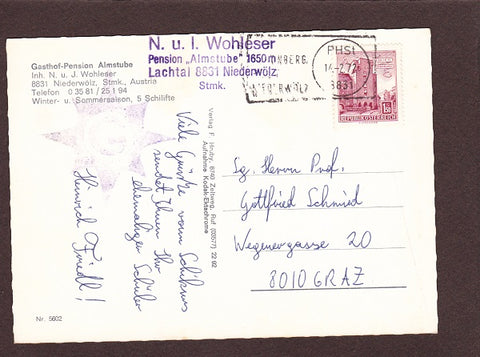 Gasthof-Pension Almstube
Inh. N. u. J. Wohleser
8831 Niederwölz, Stmk., Austria
Telefon 0 35 81 / 25 1 94
Winter- u. Sommersaison, 5 Schilifte
N. u. I. Wohleser
Pension „Almstube" 1650m
Lachtal 8831 Niederwölz,
Stmk.
PHSt
14-2.77
8831
REPUBLIK ÖSTERREICH
Viele Grüße vom Schikurs
sendet Ihnen Ihr
ehemaliger Schüler
Heinrich Friedl!
Verlag F. Hruby, 8740 Zeltweg, Ruf (03577) 22 62
Aufnahme Kodak-Ektachrome
Sg. Herrn Prof.
Gottfried Schmied
Wegenergasse 20
8010 GRAZ
Nr. 5602